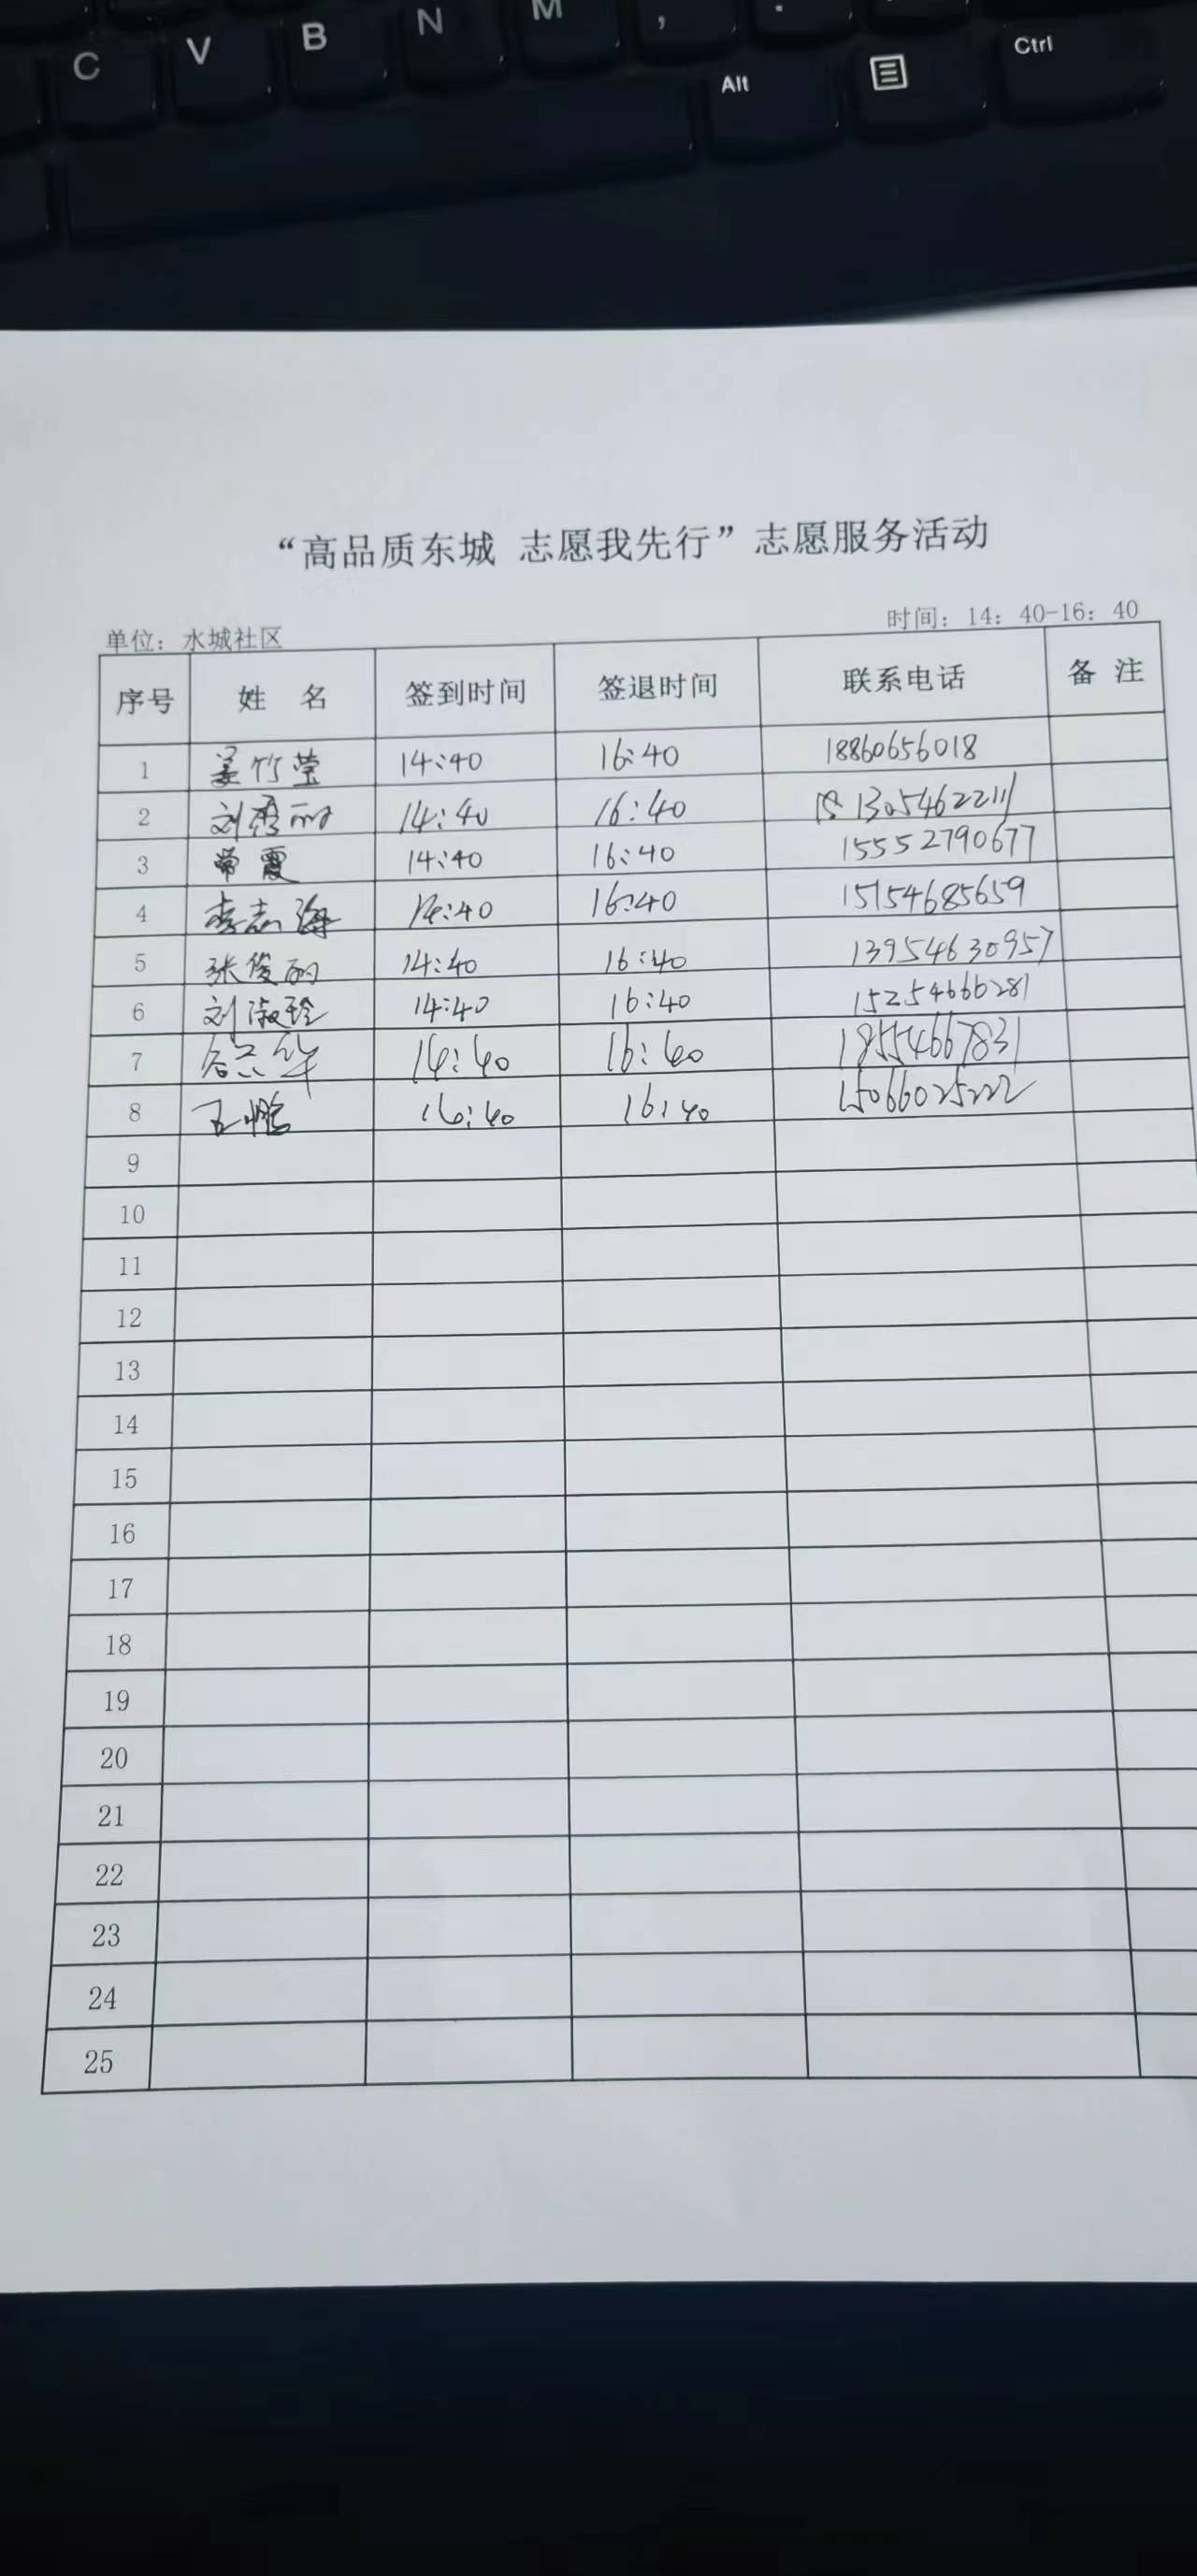 C V B N M ,
Alt Ctrl
“高品质东城 志愿我先行”志愿服务活动
单位：水城社区 时间：14：40-16：40
序号 姓 名 签到时间 签退时间 联系电话 备 注
1 姜竹莹 14:40 16:40 18860656018
2 刘秀丽 14:40 16:40 13054622111
3 常霞 14:40 16:40 15552790677
4 李志海 14:40 16:40 15154685659
5 张俊丽 14:40 16:40 13954630957
6 刘淑玲 14:40 16:40 15254666281
7 14:40 16:40 18554667831
8 王鹏 16:40 16:40 15066025222
9
10
11
12
13
14
15
16
17
18
19
20
21
22
23
24
25